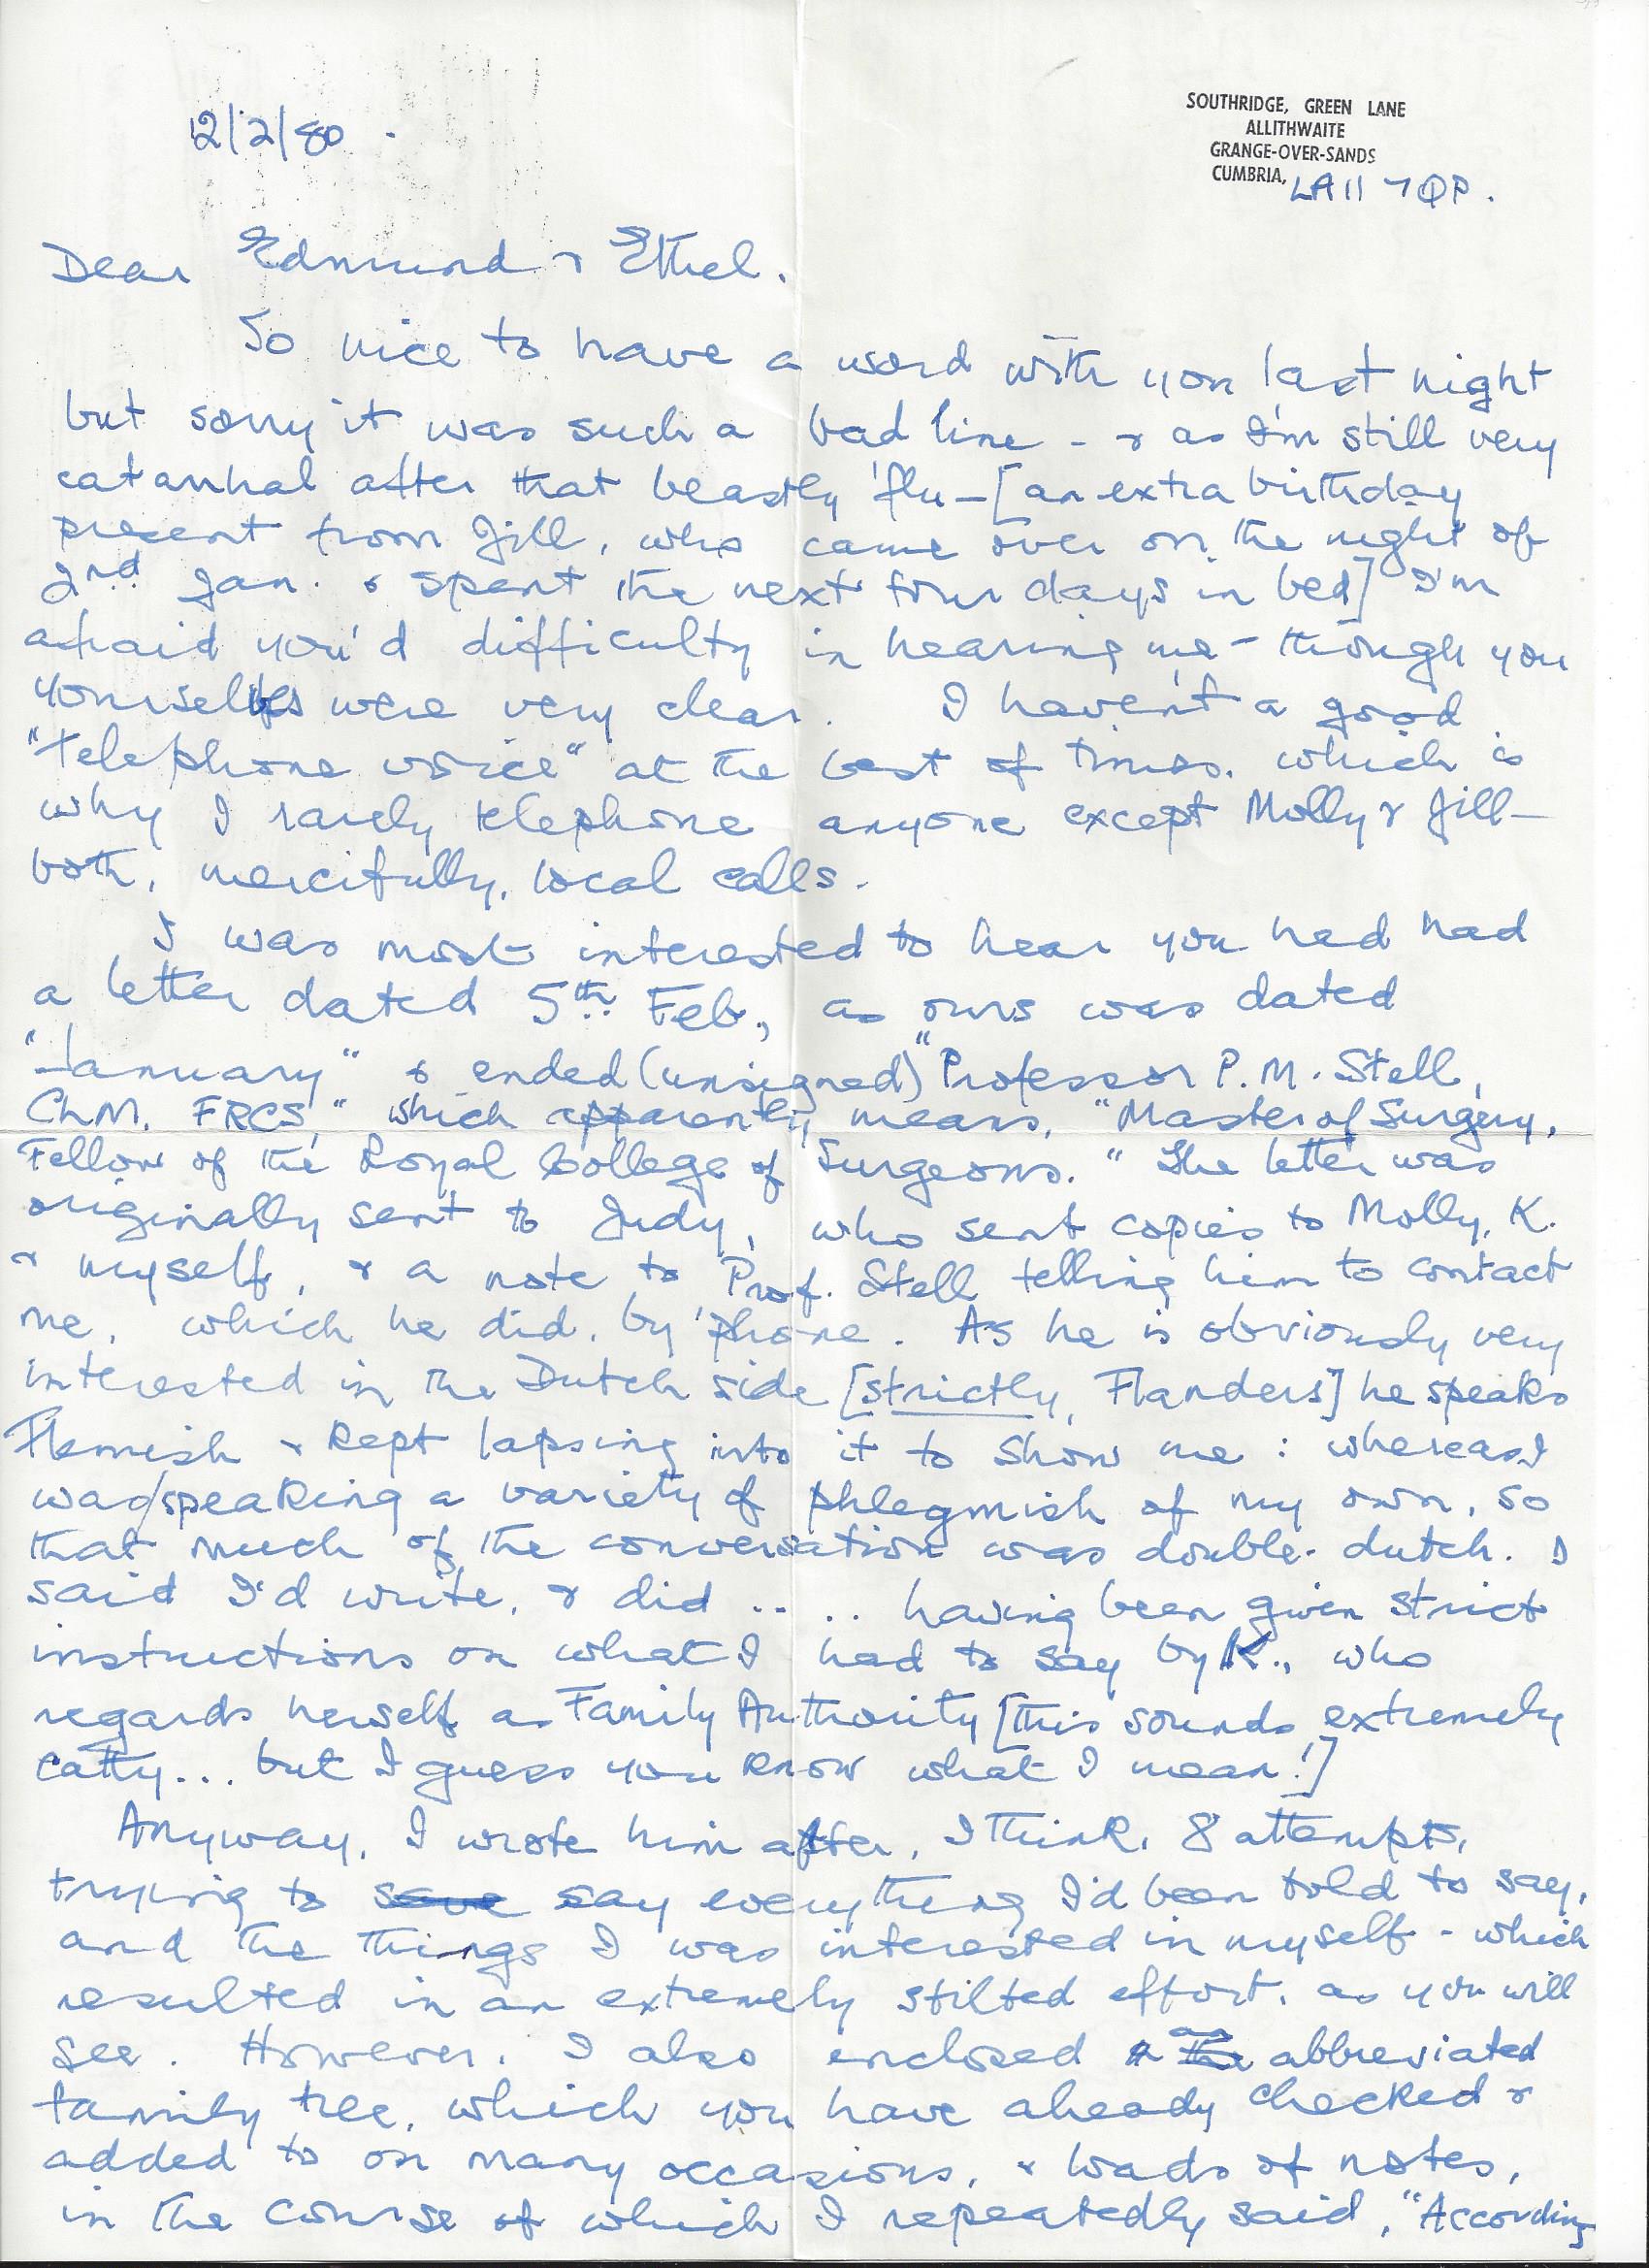 12/2/80.
SOUTHRIDGE, GREEN LANE
ALLITHWAITE
GRANGE-OVER-SANDS
CUMBRIA, LA11 7QP.
Dear Edmund & Ethel.
So nice to have a word with you last night
but sorry it was such a bad line - & as I'm still very
catarrhal after that beastly 'flu - [an extra birthday
present from Jill, who came over on the night of
2nd Jan. & spent the next four days in bed] I'm
afraid you'd difficulty in hearing me - though you
yourselves were very clear. I haven't a good
"telephone voice" at the best of times, which is
why I rarely telephone anyone except Molly & Jill -
both, mercifully, local calls.
I was most interested to hear you had had
a letter dated 5th Feb., as ours was dated
"January" & ended (unsigned) "Professor P.M. Stell,
Ch.M. FRCS," which apparently means, "Master of Surgery,
Fellow of the Royal College of Surgeons." The letter was
originally sent to Judy, who sent copies to Molly, K.
& myself, & a note to Prof. Stell telling him to contact
me, which he did, by 'phone. As he is obviously very
interested in the Dutch side [strictly, Flanders] he speaks
Flemish & kept lapsing into it to show me: whereas I
was/speaking a variety of phlegmish of my own, so
that much of the conversation was double-dutch. I
said I'd write, & did .... having been given strict
instructions on what I had to say by K., who
regards herself as Family Authority [this sounds extremely
catty... but I guess you know what I mean!]
Anyway, I wrote him after, I think, 8 attempts,
trying to say everything I'd been told to say,
and the things I was interested in myself - which
resulted in an extremely stilted effort, as you will
see. However, I also enclosed an abbreviated
family tree, which you have already checked &
added to on many occasions, & loads of notes,
in the course of which I repeatedly said, "According